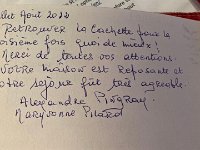 Août 2022
Retrouver la Cachette pour la
troisième fois quoi de mieux!
Merci de toutes vos attentions.
Votre maison est reposante et
notre séjour fût très agréable.
Alexandre
Maryvonne Pilard